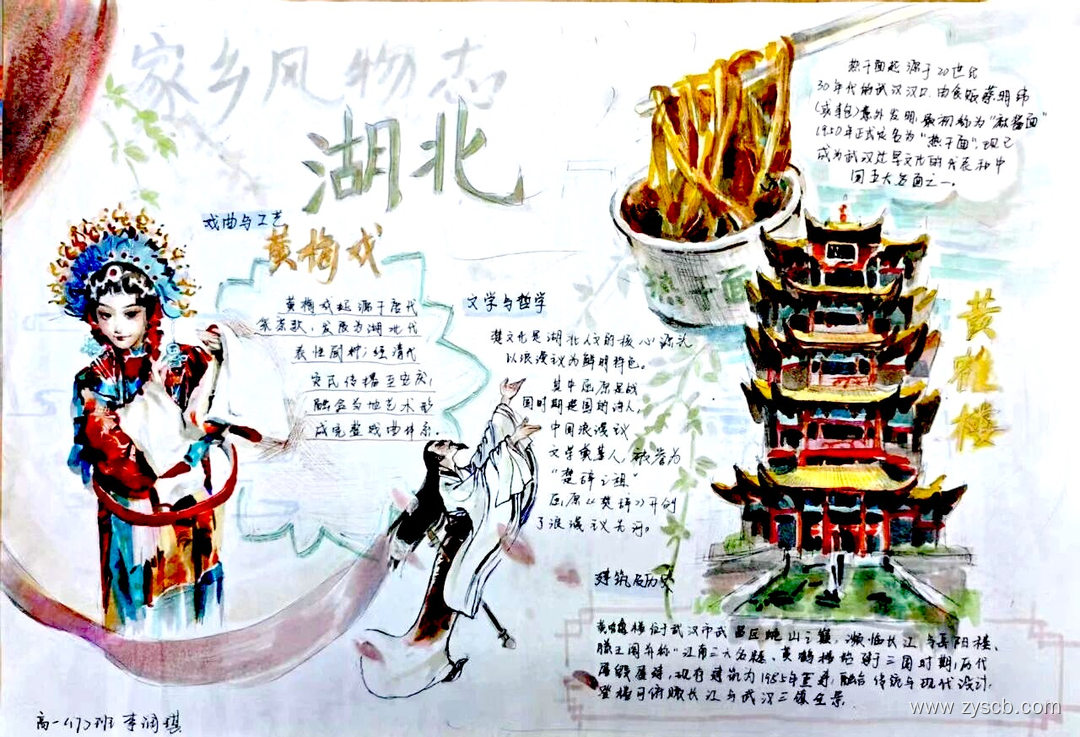 家乡风物志
湖北
戏曲与工艺
黄梅戏
黄梅戏起源于唐代
采茶歌,发展为湖北代
表性剧种;经清代
灾民传播至安庆,
融合当地艺术形
成完整戏曲体系。
文学与哲学
楚文化是湖北人文的核心源头
以浪漫议为鲜明特色。
其中屈原是战
国时期楚国的诗人,
中国浪漫议
文学奠基人,被誉为
“楚辞之祖”
屈原《楚辞》开创
了浪漫议先河。
热干面起源于20世纪
30年代的武汉汉口,由食贩蔡明纬
(或李包)意外发明,最初称为“麻酱面”
1950年正式定名为“热干面”,现已
成为武汉过早文化的代表和中
国五大名面之一。
热干面
黄鹤楼
建筑及历史
黄鹤楼位于武汉市武昌区蛇山之巅,濒临长江,与岳阳楼、
滕王阁并称“江南三大名楼。黄鹤楼始建于三国时期,历代
屡毁屡建,现存建筑为1985年重建,融合传统与现代设计,
登楼可俯瞰长江与武汉三镇全景
高一(17)班 李润琪
www.zyscb.com